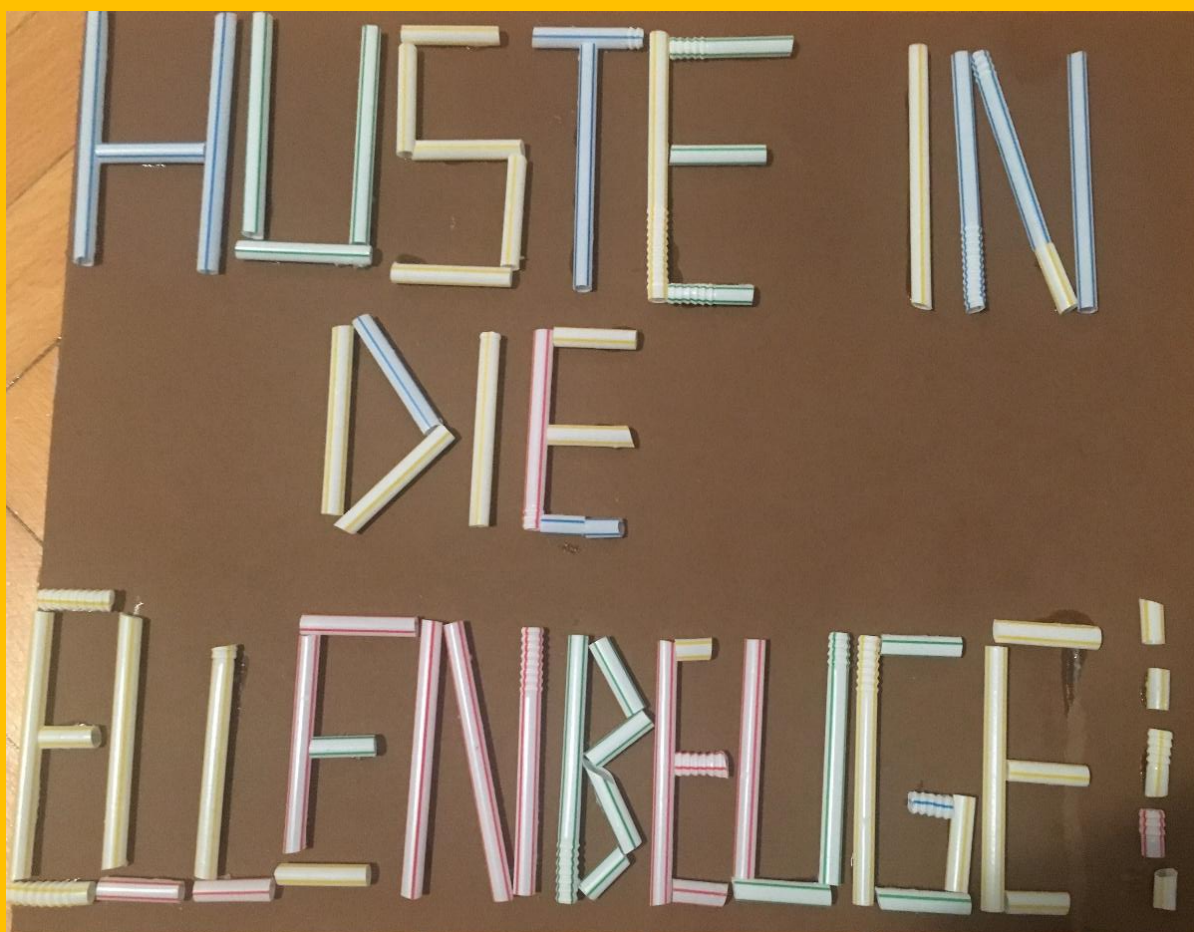 HUSTE IN
DIE
ELLENBEUGE!